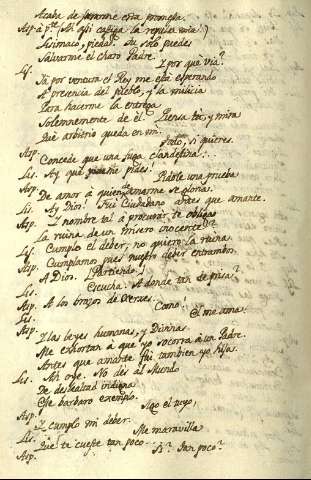 Acaba de jurarme esta promesa.
Asp. à p.te (Ah qui castiga la repulsa mia!)
Lisimaco, piedad. Tu solo puedes
Salvarme el charo Padre.
Lis. Y por que via?
Ya por ventura el Rey me està esperando
A presencia del pueblo, y la milicia
Para hacerme la entrega
Solemnemente de èl. Piensa tù, y mira
Que arbitrio queda en mi.
Asp. Todo, si quieres.
Concede que una fuga clandestina...
Lis. Ay, que me pides!
Asp. Pidole una prueba
De amor à quien amarme se gloria.
Lis. Ay, Dios! Fui Ciudadano antes que amante.
Asp. Y nombre tal à procurar te obliga
La ruina de un misero inocente?
Lis. Cumplo el deber; no quiero la ruina.
Asp. Cumplamos pues nuestro deber entrambos.
A Dios. (Partiendo)
Lis. Escucha. A donde tan de prisa?
Asp. A los brazos de Xerxes.
Lis. Como!
Asp. El me ama.
Y las leyes humanas, y Divinas
Me exhortan à que yo socorra à un Padre.
Antes que amante fui tambien yo hija.
Lis. Ah oye. No dès al Mundo
De deslealtad indigna
Ese barbaro exemplo.
Asp. Sigo el tuyo,
Y cumplo mi deber.
Lis. Me maravilla
Que te cueste tan poco.
Asp. Si? Tan poco?